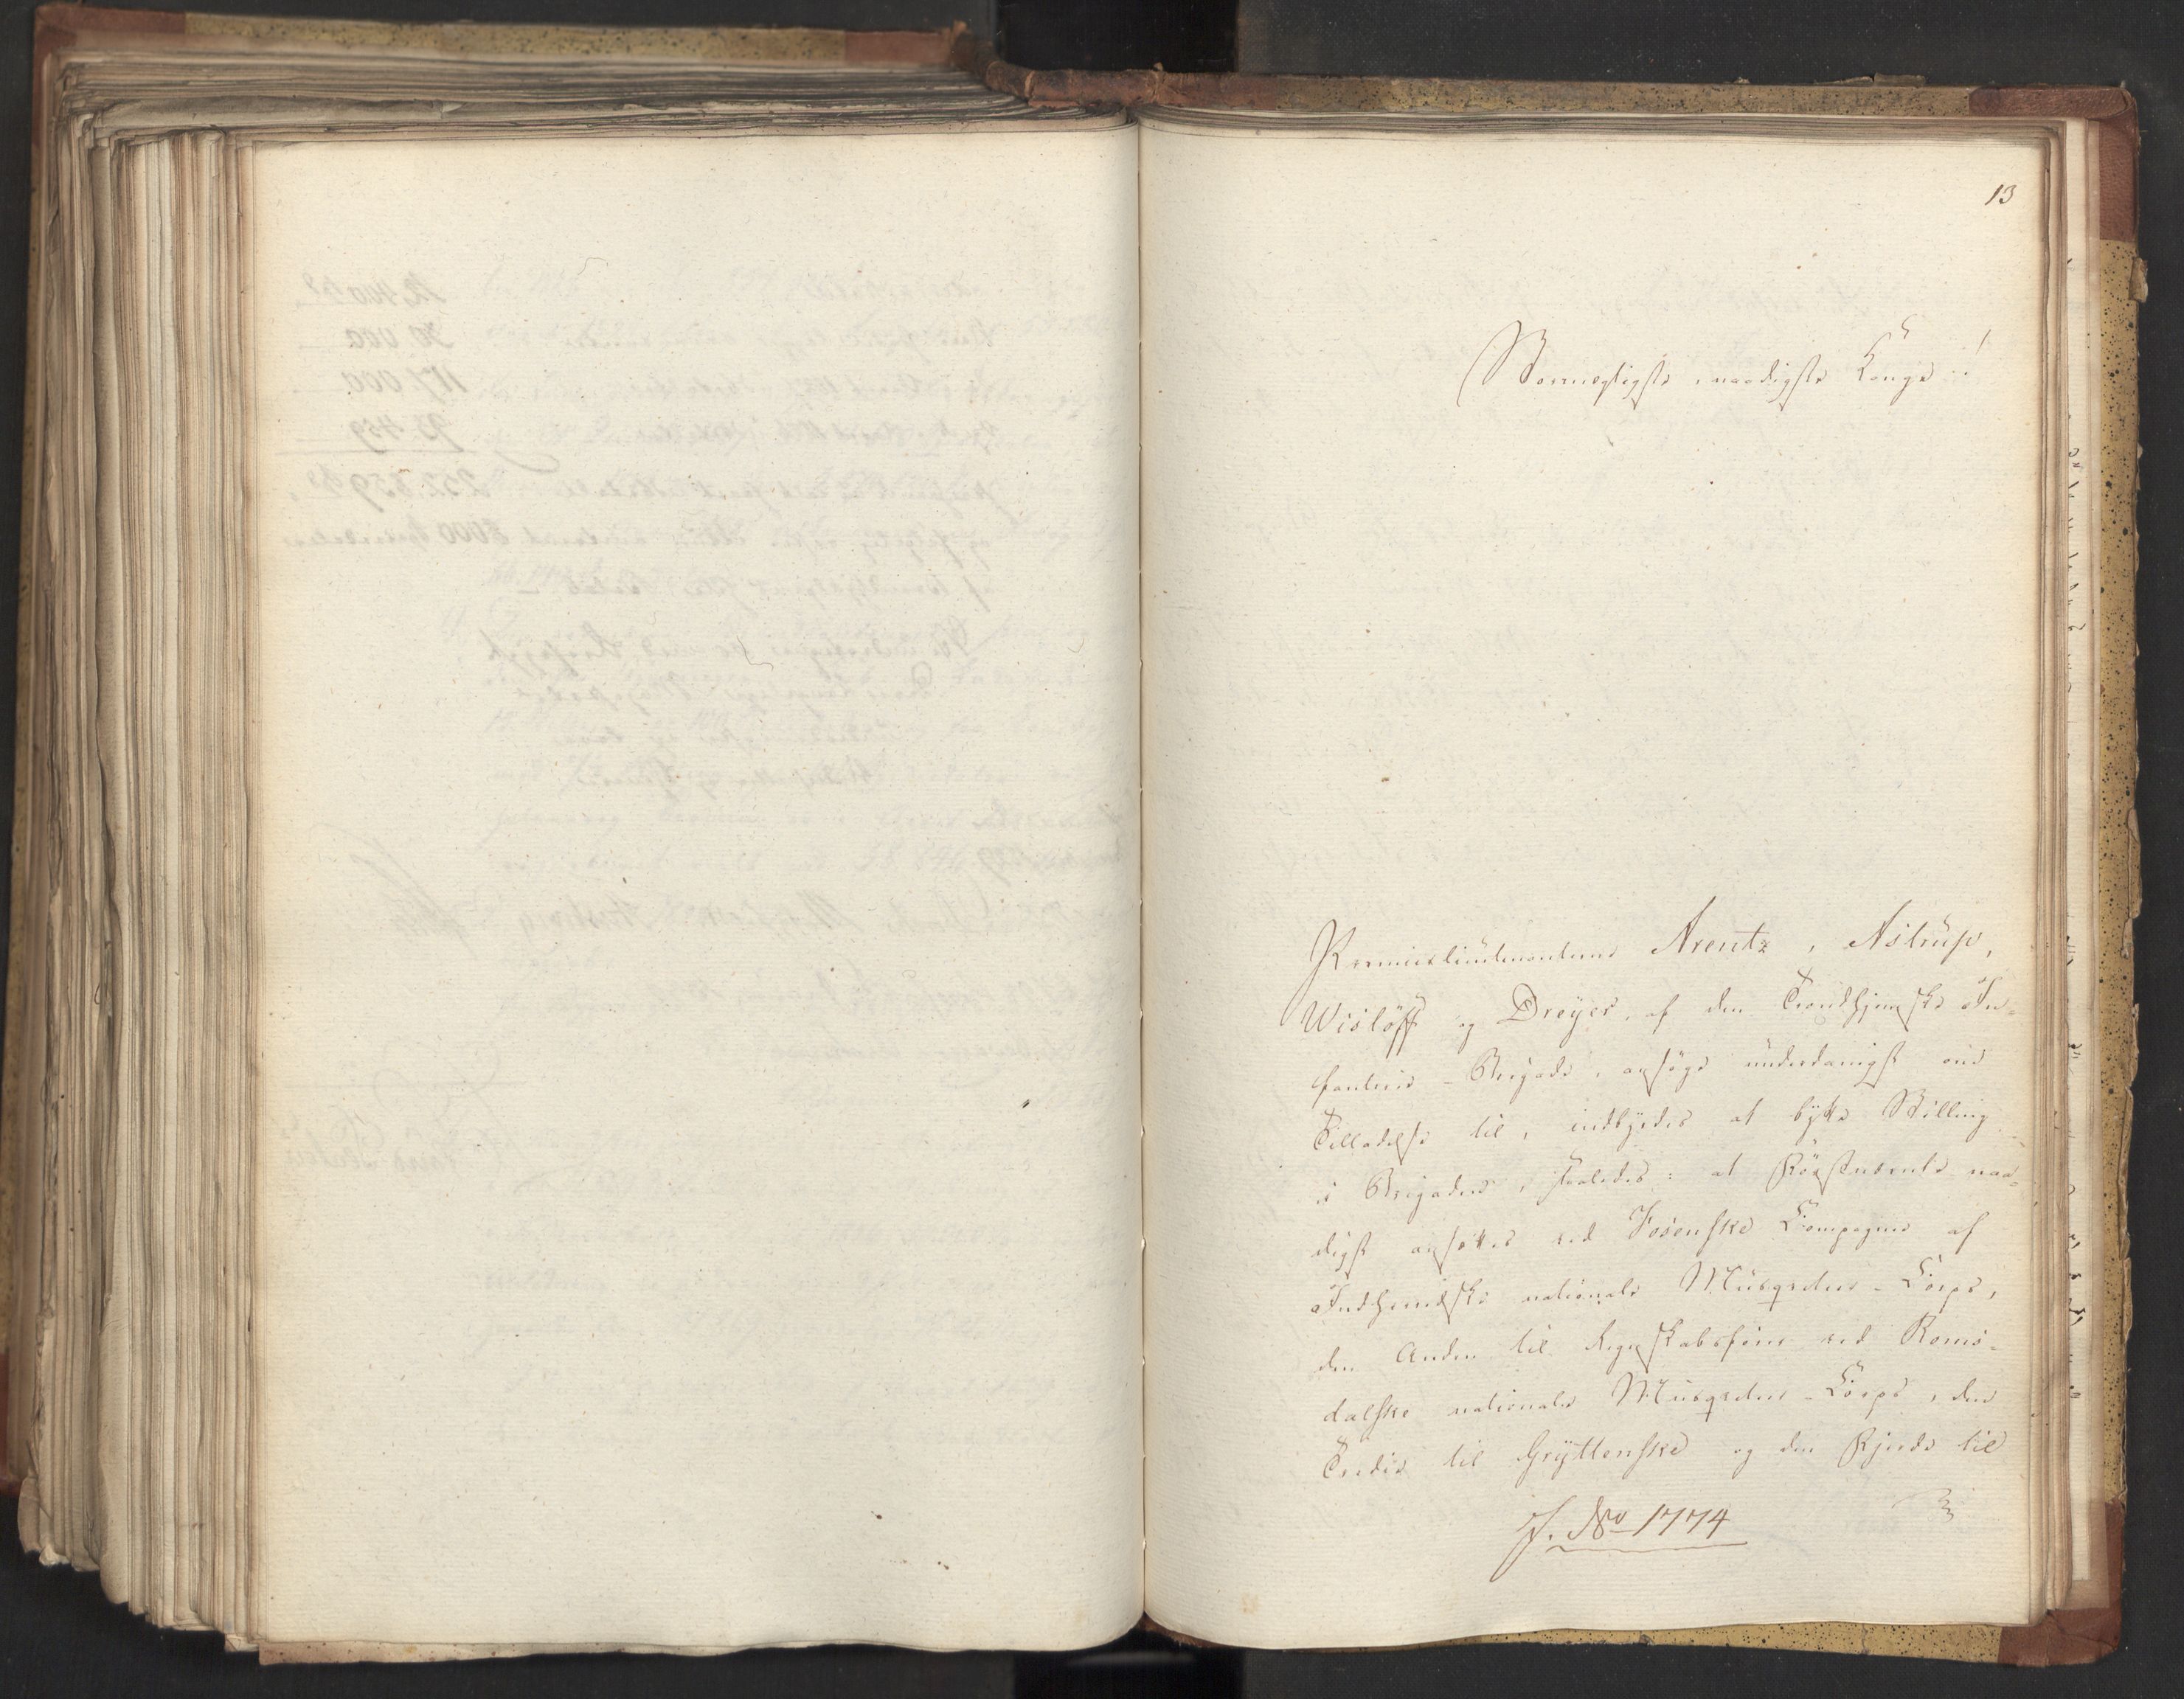 13
Stormægtigste, naadigste Konge!
Premierlieutenanterne Arentz, Astrüp,
Wislöff og Dreyer, af den Trondhjemske In-
fanterie-Brigade, ansöge ünderdanigst om
Tilladelse til, indbyrdes at bytte Stilling
i Brigaden, saaledes: at Förstnævnte naa-
digst ansættes ved Fosenske Compagnie af
Indherredske nationale Müsqveteer-Corps,
den Anden til Regnskabsförer ved Roms-
dalske nationale Müsqveteer-Corps, den
Tredie til Gryttenske og den Fjerde til
J. No 1774